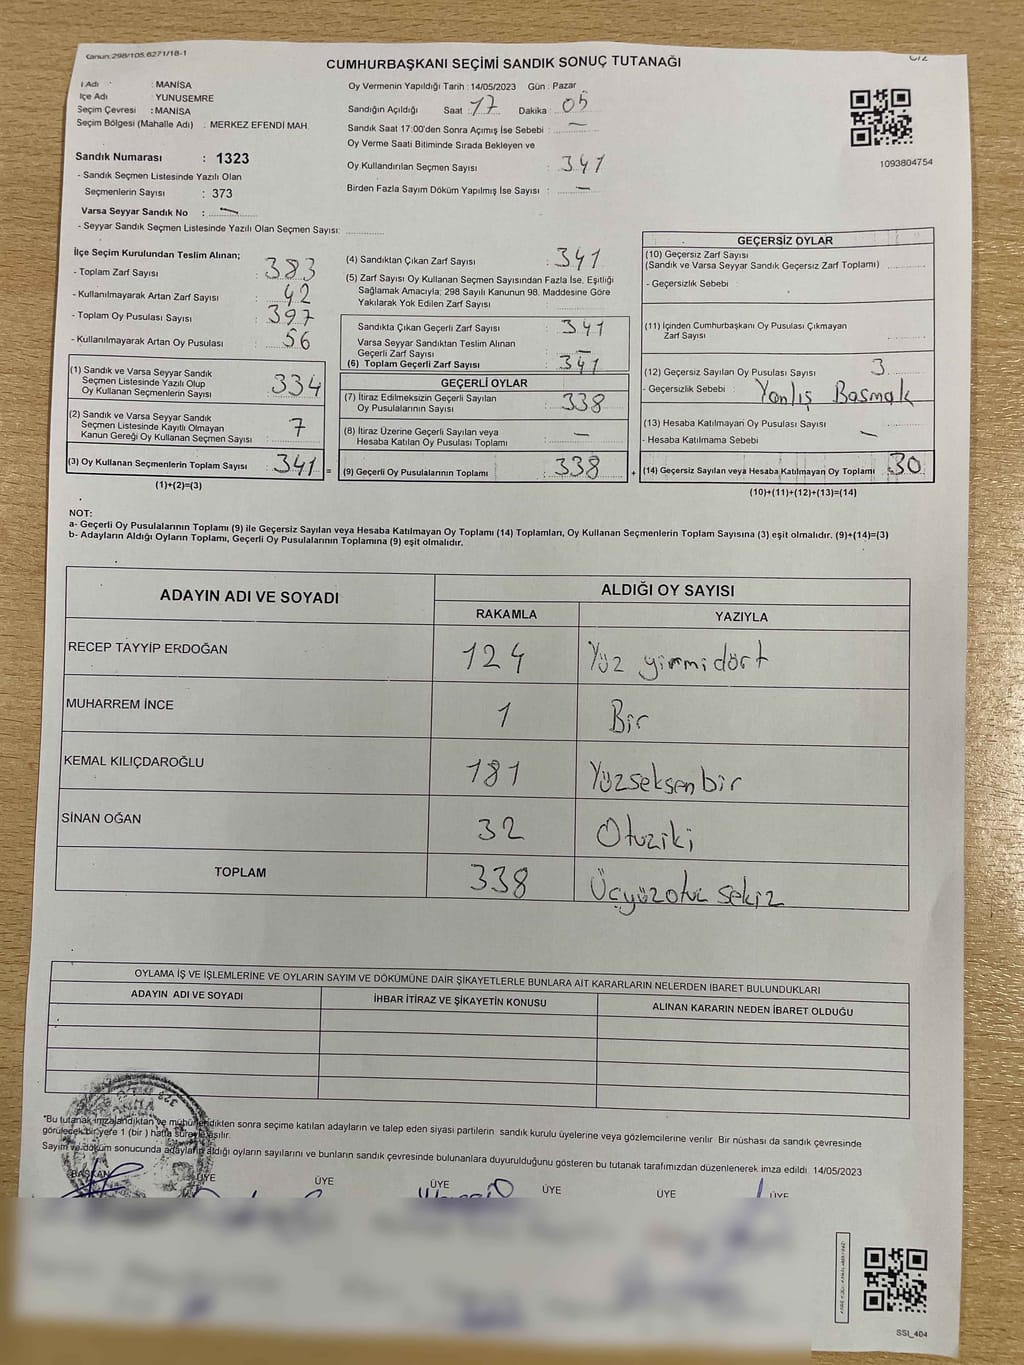 Kanun:298/105,6271/18-1
CUMHURBAŞKANI SEÇİMİ SANDIK SONUÇ TUTANAĞI
İl Adı : MANİSA
İlçe Adı : YUNUSEMRE
Seçim Çevresi : MANİSA
Seçim Bölgesi (Mahalle Adı) : MERKEZ EFENDİ MAH.
Sandık Numarası : 1323
- Sandık Seçmen Listesinde Yazılı Olan
Seçmenlerin Sayısı : 373
Varsa Seyyar Sandık No : —
- Seyyar Sandık Seçmen Listesinde Yazılı Olan Seçmen Sayısı:
Oy Vermenin Yapıldığı Tarih : 14/05/2023 Gün : Pazar
Sandığın Açıldığı Saat : 17 Dakika : 05
Sandık Saat 17:00'den Sonra Açımış İse Sebebi : —
Oy Verme Saati Bitiminde Sırada Bekleyen ve
Oy Kullandırılan Seçmen Sayısı : 341
Birden Fazla Sayım Döküm Yapılmış İse Sayısı : —
1093804754
İlçe Seçim Kurulundan Teslim Alınan;
- Toplam Zarf Sayısı : 383
- Kullanılmayarak Artan Zarf Sayısı : 42
- Toplam Oy Pusulası Sayısı : 397
- Kullanılmayarak Artan Oy Pusulası : 56
(1) Sandık ve Varsa Seyyar Sandık
Seçmen Listesinde Yazılı Olup
Oy Kullanan Seçmenlerin Sayısı : 334
(2) Sandık ve Varsa Seyyar Sandık
Seçmen Listesinde Kayıtlı Olmayan
Kanun Gereği Oy Kullanan Seçmen Sayısı : 7
(3) Oy Kullanan Seçmenlerin Toplam Sayısı : 341 =
(1)+(2)=(3)
(4) Sandıktan Çıkan Zarf Sayısı : 341
(5) Zarf Sayısı Oy Kullanan Seçmen Sayısından Fazla İse, Eşitliği
Sağlamak Amacıyla, 298 Sayılı Kanunun 98. Maddesine Göre
Yakılarak Yok Edilen Zarf Sayısı :
Sandıkta Çıkan Geçerli Zarf Sayısı : 341
Varsa Seyyar Sandıktan Teslim Alınan
Geçerli Zarf Sayısı : —
(6) Toplam Geçerli Zarf Sayısı : 341
GEÇERLİ OYLAR
(7) İtiraz Edilmeksizin Geçerli Sayılan
Oy Pusulalarının Sayısı : 338
(8) İtiraz Üzerine Geçerli Sayılan veya
Hesaba Katılan Oy Pusulası Toplamı : —
(9) Geçerli Oy Pusulalarının Toplamı : 338 +
GEÇERSİZ OYLAR
(10) Geçersiz Zarf Sayısı
(Sandık ve Varsa Seyyar Sandık Geçersiz Zarf Toplamı)
- Geçersizlik Sebebi :
(11) İçinden Cumhurbaşkanı Oy Pusulası Çıkmayan
Zarf Sayısı :
(12) Geçersiz Sayılan Oy Pusulası Sayısı : 3
- Geçersizlik Sebebi : Yanlış Basmak
(13) Hesaba Katılmayan Oy Pusulası Sayısı :
- Hesaba Katılmama Sebebi : —
(14) Geçersiz Sayılan veya Hesaba Katılmayan Oy Toplamı : 30
(10)+(11)+(12)+(13)=(14)
NOT:
a- Geçerli Oy Pusulalarının Toplamı (9) ile Geçersiz Sayılan veya Hesaba Katılmayan Oy Toplamı (14) Toplamları, Oy Kullanan Seçmenlerin Toplam Sayısına (3) eşit olmalıdır. (9)+(14)=(3)
b- Adayların Aldığı Oyların Toplamı, Geçerli Oy Pusulalarının Toplamına (9) eşit olmalıdır.
ADAYIN ADI VE SOYADI ALDIĞI OY SAYISI
RAKAMLA YAZIYLA
RECEP TAYYİP ERDOĞAN 124 Yüz yirmidört
MUHARREM İNCE 1 Bir
KEMAL KILIÇDAROĞLU 181 Yüzseksenbir
SİNAN OĞAN 32 Otuziki
TOPLAM 338 Üçyüzotuz sekiz
OYLAMA İŞ VE İŞLEMLERİNE VE OYLARIN SAYIM VE DÖKÜMÜNE DAİR ŞİKAYETLERLE BUNLARA AİT KARARLARIN NELERDEN İBARET BULUNDUKLARI
ADAYIN ADI VE SOYADI İHBAR İTİRAZ VE ŞİKAYETİN KONUSU ALINAN KARARIN NEDEN İBARET OLDUĞU
*Bu tutanak imzalandıktan ve mühürlendikten sonra seçime katılan adayların ve talep eden siyasi partilerin sandık kurulu üyelerine veya gözlemcilerine verilir. Bir nüshası da sandık çevresinde
görülecek bir yere 1 (bir) hafta süreyle asılır.
Sayım ve döküm sonucunda adayların aldığı oyların sayılarını ve bunların sandık çevresinde bulunanlara duyurulduğunu gösteren bu tutanak tarafımızdan düzenlenerek imza edildi. 14/05/2023
BAŞKAN ÜYE ÜYE ÜYE ÜYE ÜYE ÜYE
SSI_404